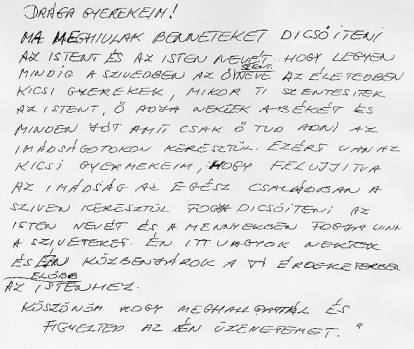 DRÁGA GYEREKEIM!
MA MEGHIVLAK BENNETEKET DICSŐITENI
AZ ISTENT ÉS AZ ISTEN NEVÉT HOGY LEGYEN
SZENT
MINDIG A SZIVEDBEN AZ Ő NEVE AZ ÉLETEDBEN
KICSI GYEREKEK, MIKOR TI SZENTESITEK
AZ ISTENT, Ő ADJA NEKTEK A BÉKÉT ÉS
MINDEN JÓT AMIT CSAK Ő TUD ADNI AZ
IMÁDSÁGOTOKON KERESZTÜL. EZÉRT VAN AZ
KICSI GYERMEKEIM, HOGY FELUJJITVA
AZ IMÁDSÁG AZ EGÉSZ CSALÁDBAN A
SZIVEN KERESZTÜL FOGJA DICSŐITENI AZ
ISTEN NEVÉT ÉS A MENNYEKBEN FOGJA VINNI
A SZIVETEKET. ÉN ITT VAGYOK NEKTEK
ÉS ÉN KÖZBENJÁROK A TI ÉRDEKETEKBEN
ELŐBB
AZ ISTENHEZ.
KÖSZÖNÖM HOGY MEGHALLGATTÁL ÉS
FIGYELTED AZ ÉN ÜZENETEMET."